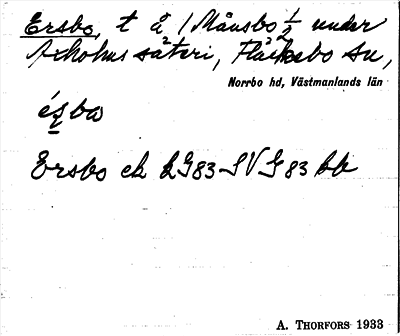 Ersbo, t å 1 Månsbo 1/2 under
säteri, Fläckebo sn,
Norrbo hd, Västmanlands län
Ersbo ek LG83-SVG83 bb
A. THORFORS 1933